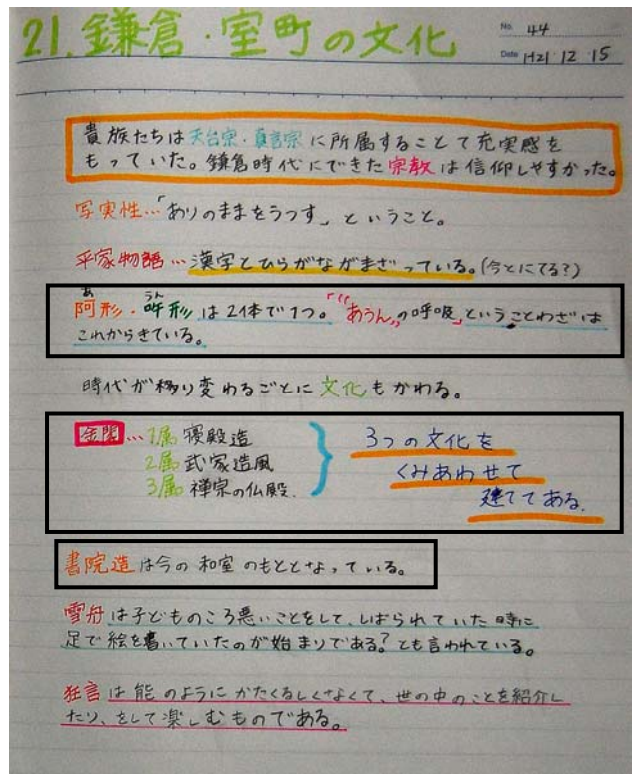 No. 44
21. 鎌倉・室町の文化
Date H21 12 15
貴族たちは天台宗・真言宗に所属することで充実感を
もっていた。鎌倉時代にできた宗教は信仰しやすかった。
写実性…「ありのままをうつす」ということ。
平家物語…漢字とひらがながまざっている。(今とにてる?)
あ うん
阿形・吽形は2体で1つ。「“あうん”の呼吸」ということわざは
これからきている。
時代が移り変わるごとに文化もかわる。
金閣…1層 寝殿造
2層 武家造風
3層 禅宗の仏殿.
3つの文化を
くみあわせて
建ててある.
書院造は今の和室のもととなっている。
雪舟は子どものころ悪いことをして、しばられていた時に
足で絵を書いていたのが始まりである?とも言われている。
狂言は能のようにかたくるしくなくて、世の中のことを紹介し
たり、をして楽しむものである。